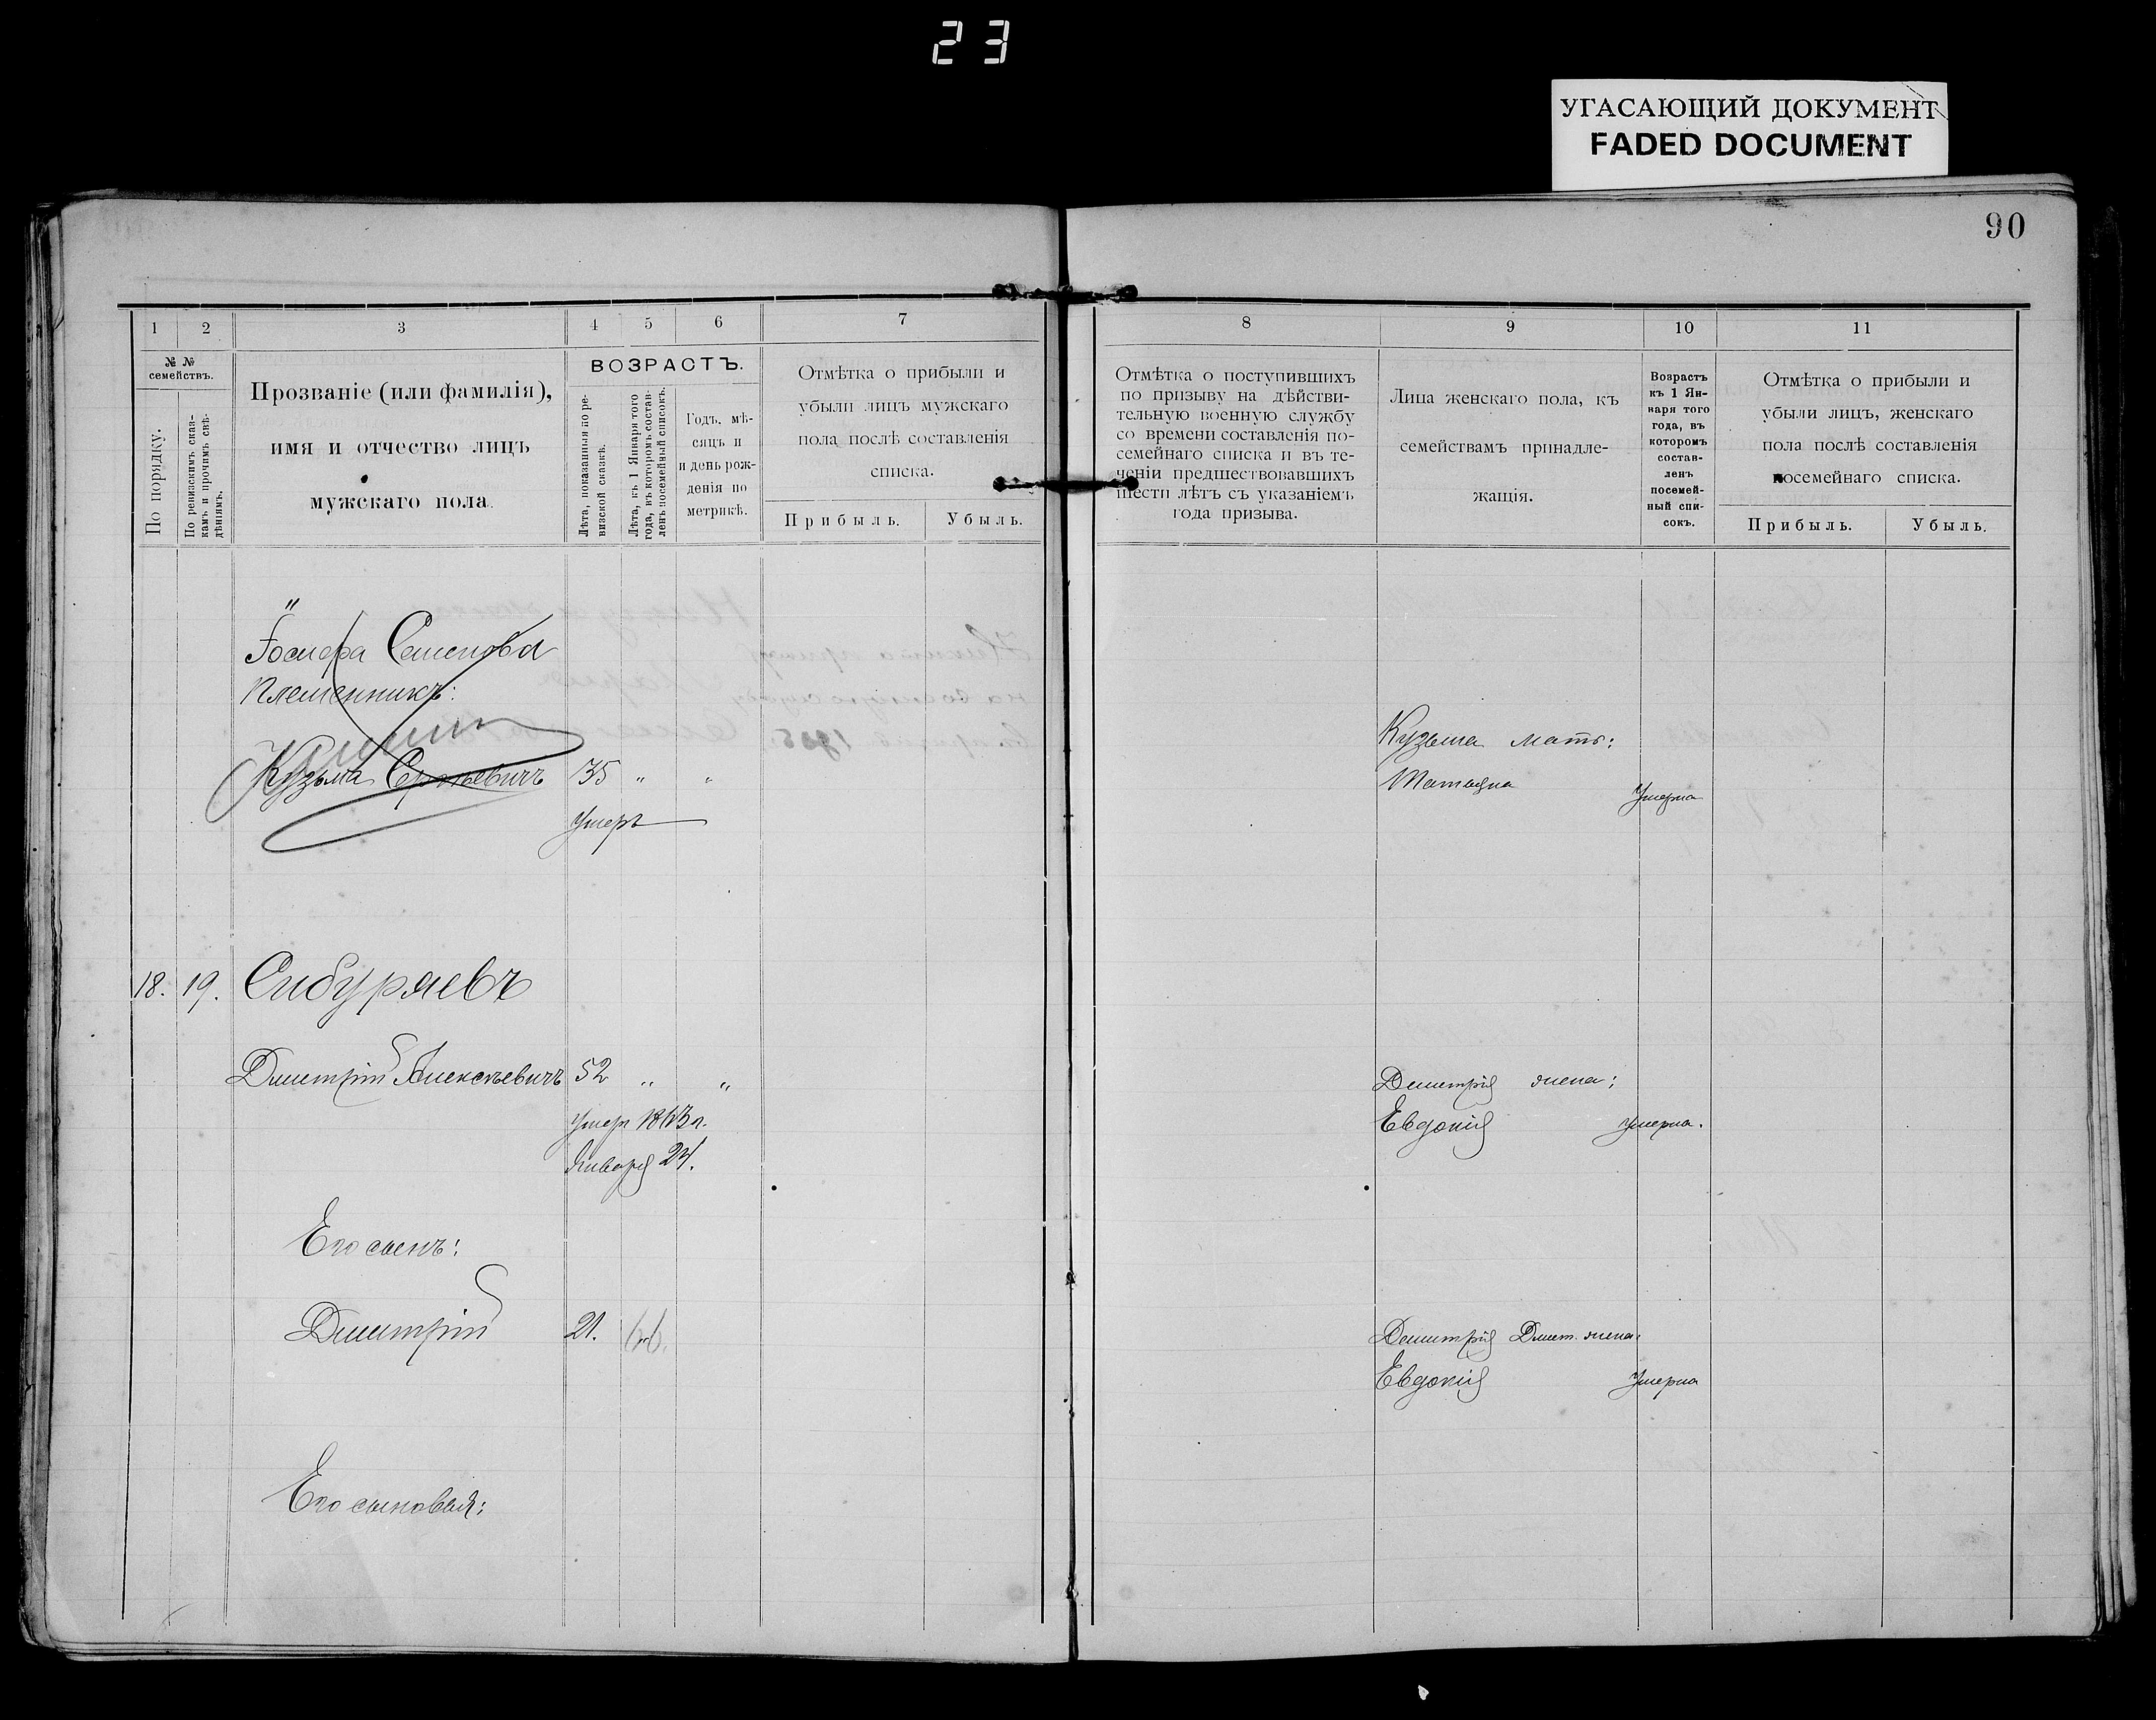 23
УГАСАЮЩИЙ ДОКУМЕНТ
FADED DOCUMENT
90
1 2 3 4 5 6 7
№ №
семействъ.
По порядку.
По ревизскимъ сказ-
камъ и прочимъ свѣ-
дѣніямъ.
Прозваніе (или фамилія),
имя и отчество лицъ
мужскаго пола
ВОЗРАСТЪ.
Лѣта, показанныя по ре-
визской сказкѣ.
Лѣта, къ 1 Января того
года, въ которомъ состав-
ленъ посемейный списокъ.
Годъ, мѣ-
сяцъ и
и день рож-
денія по
метрикѣ.
Отмѣтка о прибыли и
убыли лицъ мужскаго
пола послѣ составленія
списка.
Прибыль. Убыль.
8 9 10 11
Отмѣтка о поступившихъ
по призыву на дѣйстви-
тельную военную службу
со времени составленія по-
семейнаго списка и въ те-
ченіи предшествовавшихъ
шести лѣтъ съ указаніемъ
года призыва.
Лица женскаго пола, къ
семействамъ принадле-
жащія.
Возрастъ
къ 1 Ян-
варя того
года, въ
которомъ
состав-
ленъ
посемей-
ный спи-
сокъ.
Отмѣтка о прибыли и
убыли лицъ, женскаго
пола послѣ составленія
посемейнаго списка.
Прибыль. Убыль.
"
Іосифа Семенова
племенникъ:
Кузьма Сергѣевичъ 35 " "
Умеръ
Кузьма мать:
Татьяна Умерла
18. 19. Сибуряевъ
Дмитрій Алексѣевичъ 52 " "
умеръ 1863 г.
Января 24.
Дмитрія жена:
Евдокія умерла.
Его сынъ:
Дмитрій 21. 66.
Дмитрія Дмит. жена:
Евдокія Умерла
Его сыновья: